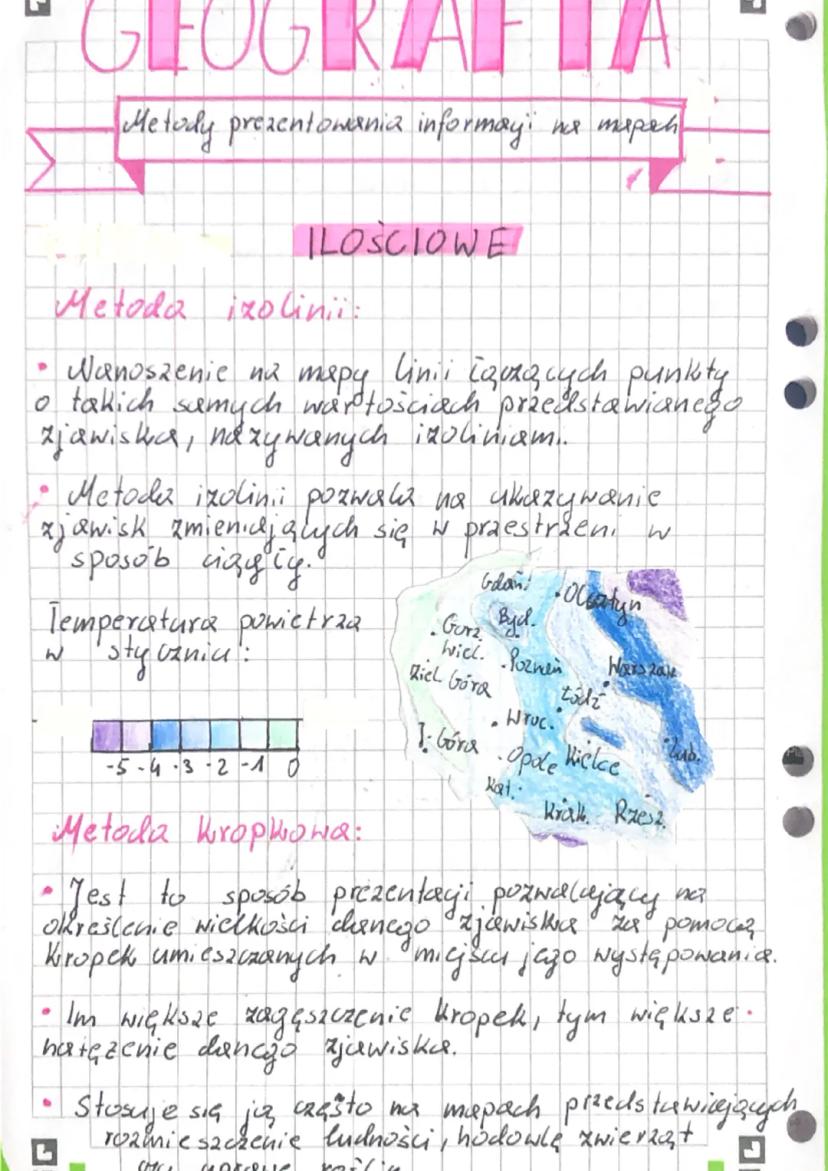 GEOGRAFIA
Metody prezentowania informacji na mapach
ILOŚCIOWE
Metoda izolinii:
• Wanoszenie na mapy linii łączących punkty
o takich samych wartościach przedstawianego
zjawiska, nazywanych izoliniami.
• Metoda izolinii pozwala na ukazywanie
zjawisk zmieniających się w przestrzeni w
sposób ciągły.
Temperatura powietrza
w styczniu:
-5 -4 -3 -2 -1 0
Gdańs
Olsztyn
Byd.
Gorz.
Wiel.
Poznań
Warszaw
Ziel. Góra
Łódź
Wroc.
J. Góra
Opole
Kielce
Lub.
Kat.
Krak.
Rzesz.
Metoda kropkowa:
• Jest to sposób prezentacji pozwalający na
określenie wielkości danego zjawiska za pomocą
kropek umieszczanych w miejscu jego występowania.
• Im większe zagęszczenie kropek, tym większe
natężenie danego zjawiska.
• Stosuje się ją często na mapach przedstawiających
rozmieszczenie ludności, hodowlę zwierząt
oraz uprawę roślin